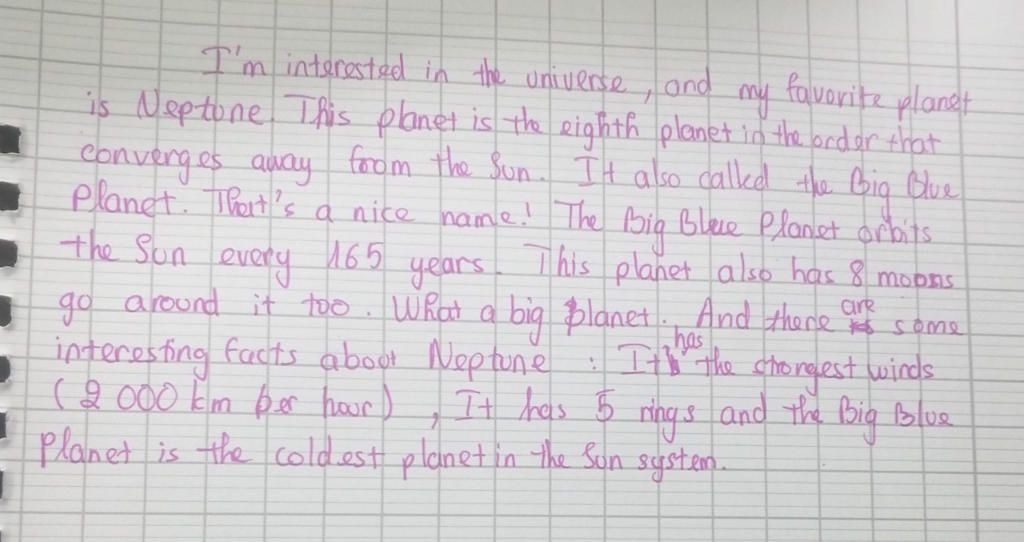 I'm interested in the universe, and my favorite planet
is Neptune. This planet is the eighth planet in the order that
converges away from the Sun. It also called the Big Blue
Planet. That's a nice name! The Big Blue Planet orbits
the Sun every 165 years. This planet also has 8 moons
go around it too. What a big planet. And there are some
interesting facts about Neptune : It has the strongest winds
(2 000 km per hour) , It has 5 rings and the Big Blue
Planet is the coldest planet in the Sun system.